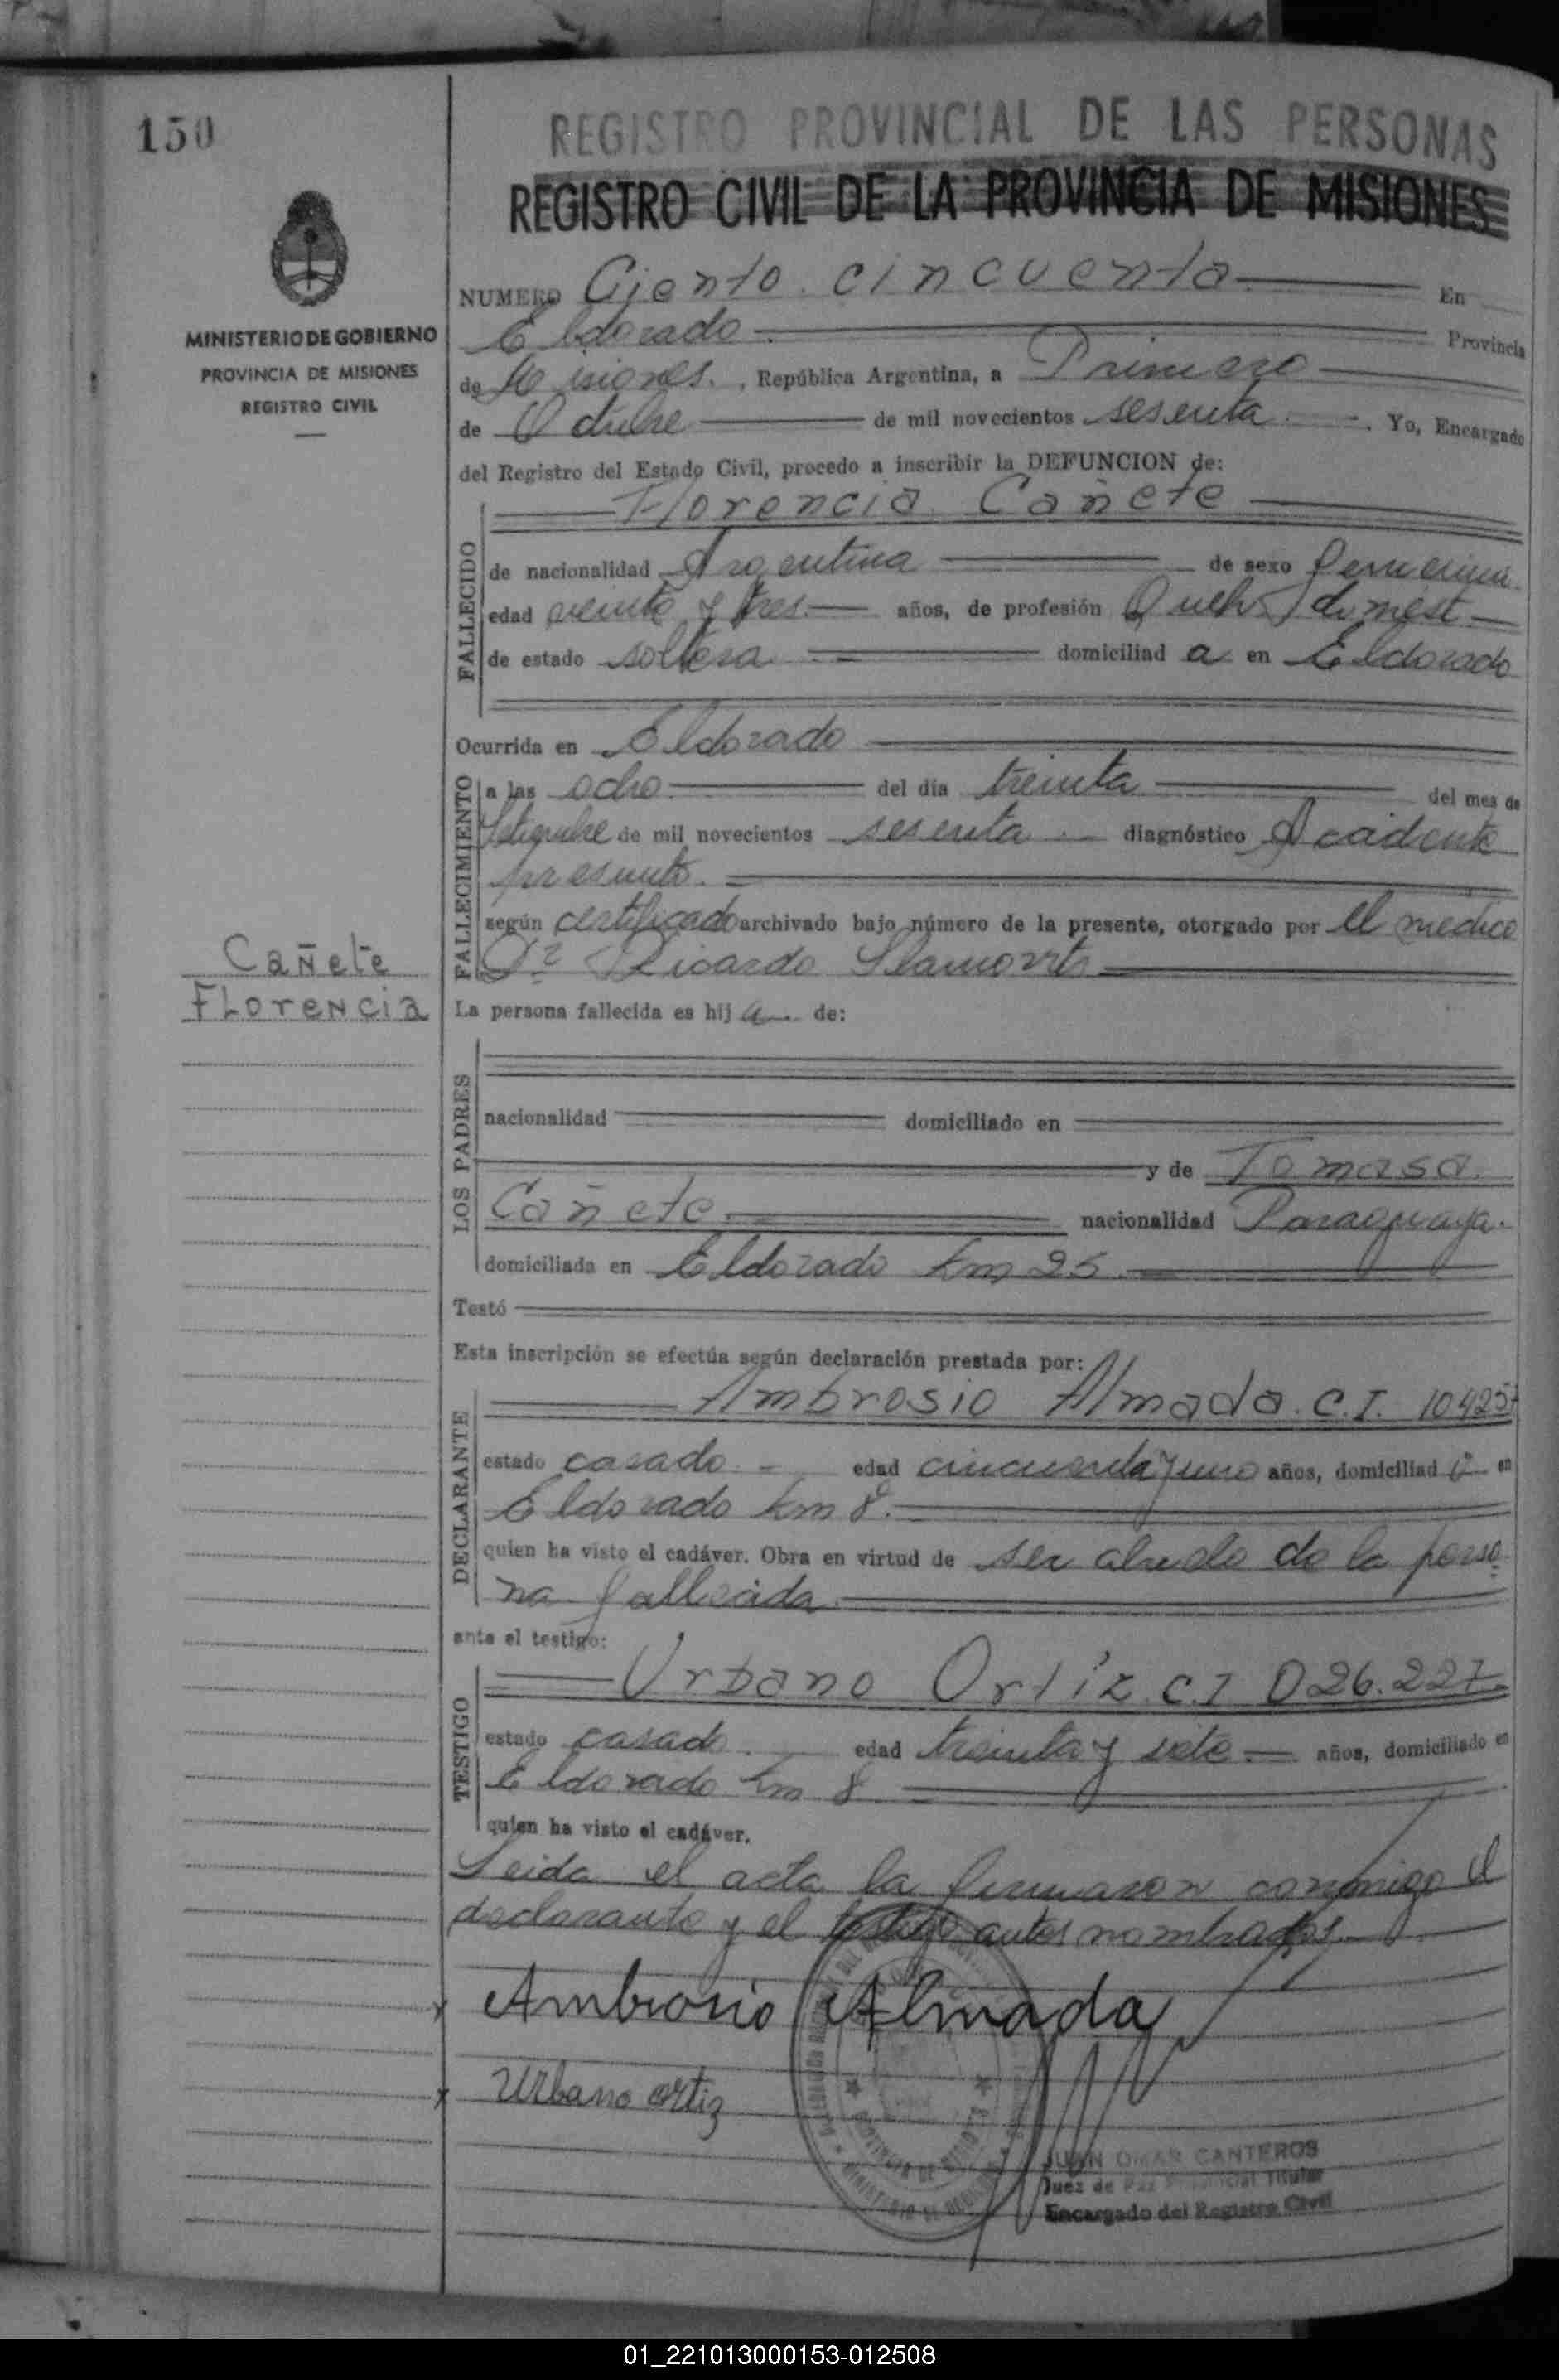 150
REGISTRO PROVINCIAL DE LAS PERSONAS
REGISTRO CIVIL DE LA PROVINCIA DE MISIONES
MINISTERIO DE GOBIERNO
PROVINCIA DE MISIONES
REGISTRO CIVIL
NUMERO Ciento cincuenta En
Eldorado Provincia
de Misiones. , República Argentina, a Primero
de Octubre de mil novecientos sesenta . Yo, Encargado
del Registro del Estado Civil, procedo a inscribir la DEFUNCION de:
Florencia Cañete
FALLECIDO
de nacionalidad Argentina de sexo femenino
edad veinte y tres. años, de profesión Queh. domest
de estado soltera domiciliad a en Eldorado
Ocurrida en Eldorado
FALLECIMIENTO
a las ocho del día treinta del mes de
Setiembre de mil novecientos sesenta diagnóstico Accidente
presunto.
según certificado archivado bajo número de la presente, otorgado por el medico
Dr Ricardo
Cañete
Florencia
La persona fallecida es hij a de:
LOS PADRES
nacionalidad domiciliado en
y de Tomasa
Cañete nacionalidad Paraguaya.
domiciliada en Eldorado km 25
Testó
Esta inscripción se efectúa según declaración prestada por:
Ambrosio Almada. C.I. 104257
DECLARANTE
estado casado edad cincuenta y uno años, domiciliad o en
Eldorado km 8.
quien ha visto el cadáver. Obra en virtud de ser de la perso
na fallecida
ante el testigo:
Urbano Ortíz C.I 026.227
TESTIGO
estado casado edad treinta y siete años, domiciliado en
Eldorado km 8
quien ha visto el cadáver.
Leida el acta la firmaron conmigo el
declarante y el testigo antes nombrados.
x Ambrosio Almada
x Urbano ortiz
JUAN OMAR CANTEROS
Juez de Paz Provincial Titular
Encargado del Registro Civil
01_221013000153-012508